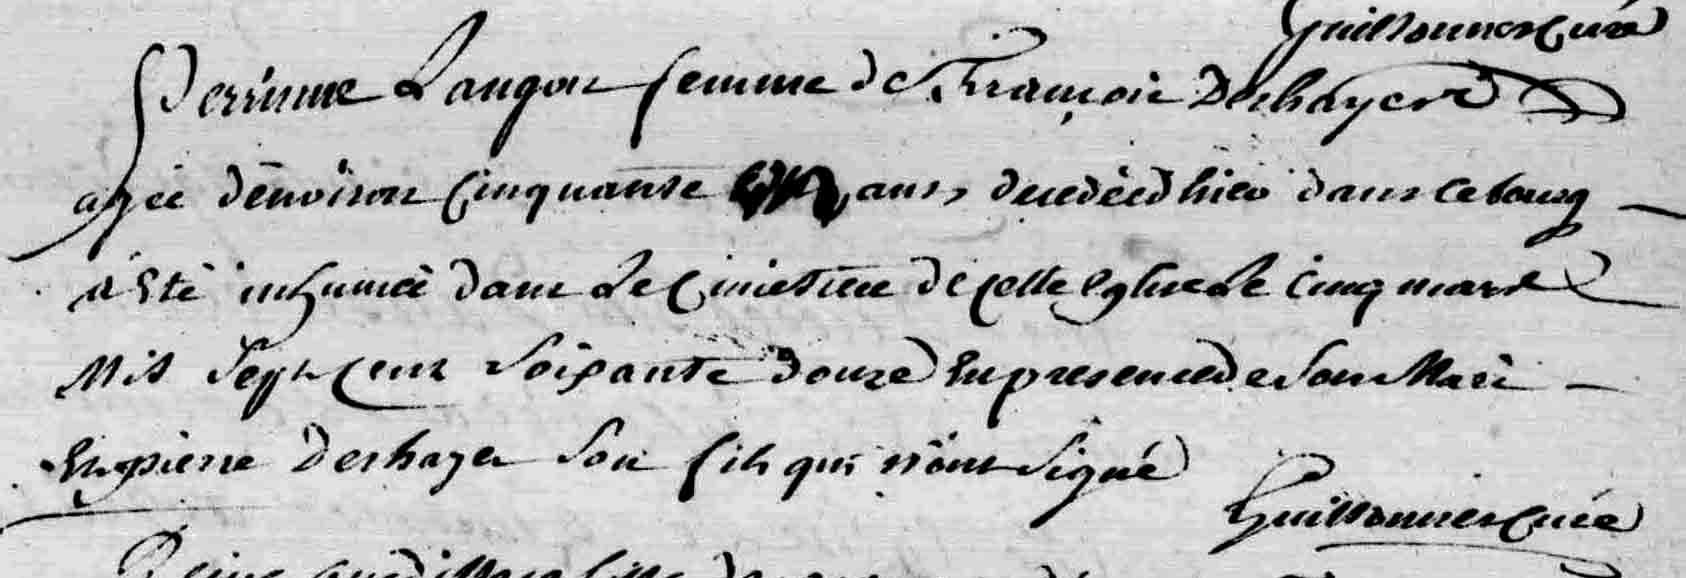 Guillonner Curé
Perrinne Langon femme de François Deshayes
agée d'environ Cinquante ans, decedée d'hier dans ce bourg
a Eté inhumée dans Le Cimetiere de cette Eglise Le Cinq mars
Mil Sept Cent Soixante douze En presence de Son Mari
Et pierre Deshayes Son fils qui n'ont Signé
Guillonner Curé